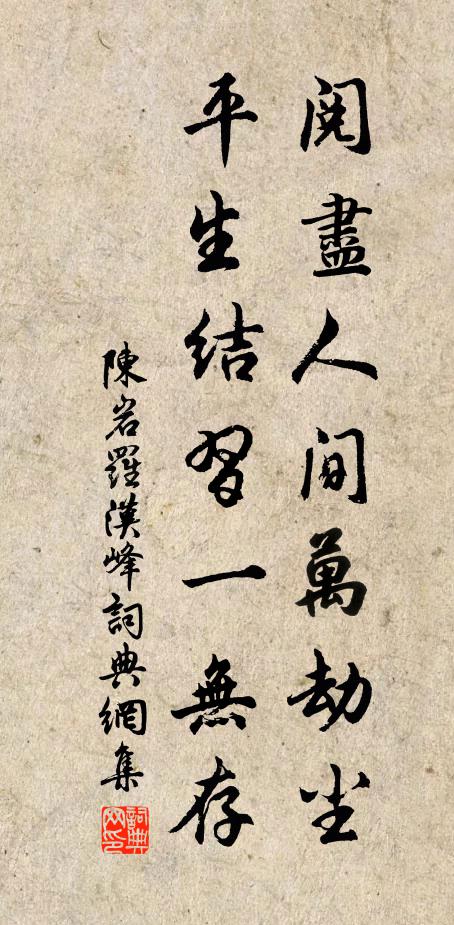 閱盡人間萬劫尘
平生結習一無存
陳岩羅漢峰詞典網集
詞典
网印